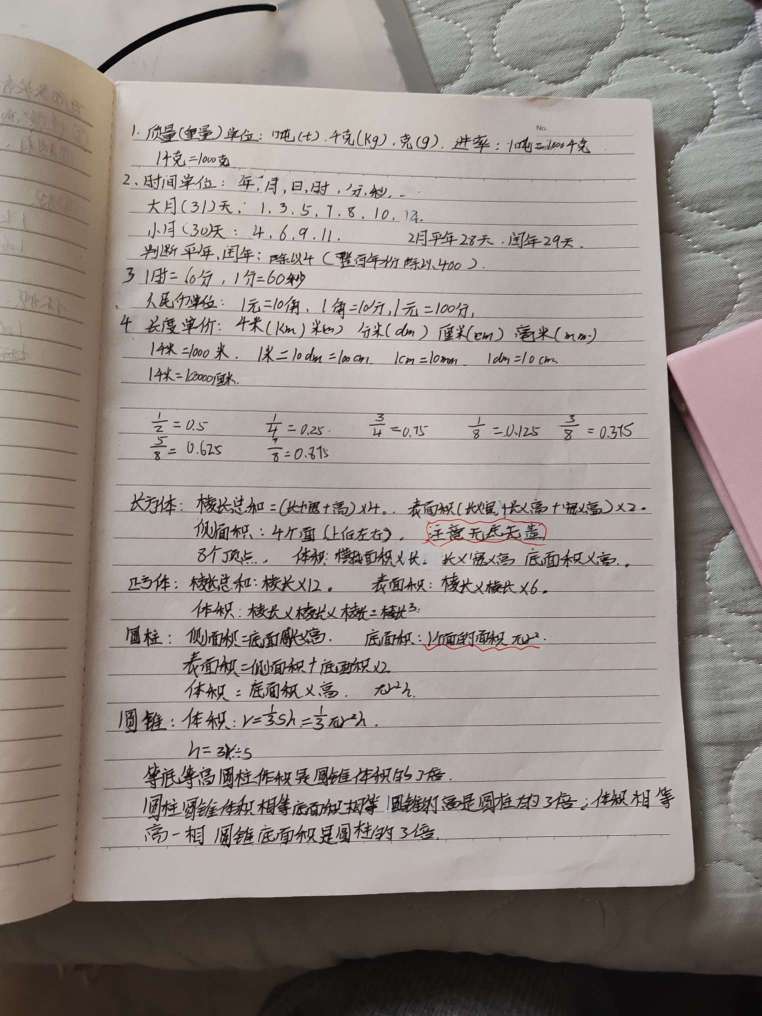 No.
1. 质量(重量)单位: 吨(t). 千克(Kg). 克(g). 进率: 1吨=1000千克
1千克=1000克
2. 时间单位: 年, 月, 日, 时, 分, 秒, ..
大月(31)天: 1, 3, 5, 7, 8, 10, 12.
小月(30)天: 4, 6, 9, 11. 2月平年28天. 闰年29天.
判断平年, 闰年: 除以4 (整百年份除以400).
3 1时=60分, 1分=60秒
人民币单位: 1元=10角, 1角=10分, 1元=100分,
4 长度单价: 千米(Km) 米(m) 分米(dm) 厘米(cm) 毫米(mm)
1千米=1000米. 1米=10dm=100cm. 1cm=10mm. 1dm=10cm.
1千米=100000厘米.
1/2=0.5 1/4=0.25. 3/4=0.75 1/8=0.125 3/8=0.375
5/8=0.625 7/8=0.875
长方体: 棱长总和=(长+宽+高)×4. 表面积(长×宽+长×高+宽×高)×2.
侧面积: 4个面(上下左右). 注意无底无盖
8个顶点. 体积: 横截面积×长. 长×宽×高 底面积×高.
正方体: 棱长总和: 棱长×12. 表面积: 棱长×棱长×6.
体积: 棱长×棱长×棱长=棱长³
圆柱: 侧面积=底面周长×高. 底面积: 1个面的面积 πr².
表面积=侧面积+底面积×2
体积=底面积×高. πr²h.
圆锥: 体积: V=1/3Sh=1/3πr²h.
h=3V÷S
等底等高圆柱体积是圆锥体积的3倍.
圆柱圆锥体积相等底面积相等 圆锥的高是圆柱的3倍; 体积相等
高一相 圆锥底面积是圆柱的3倍.